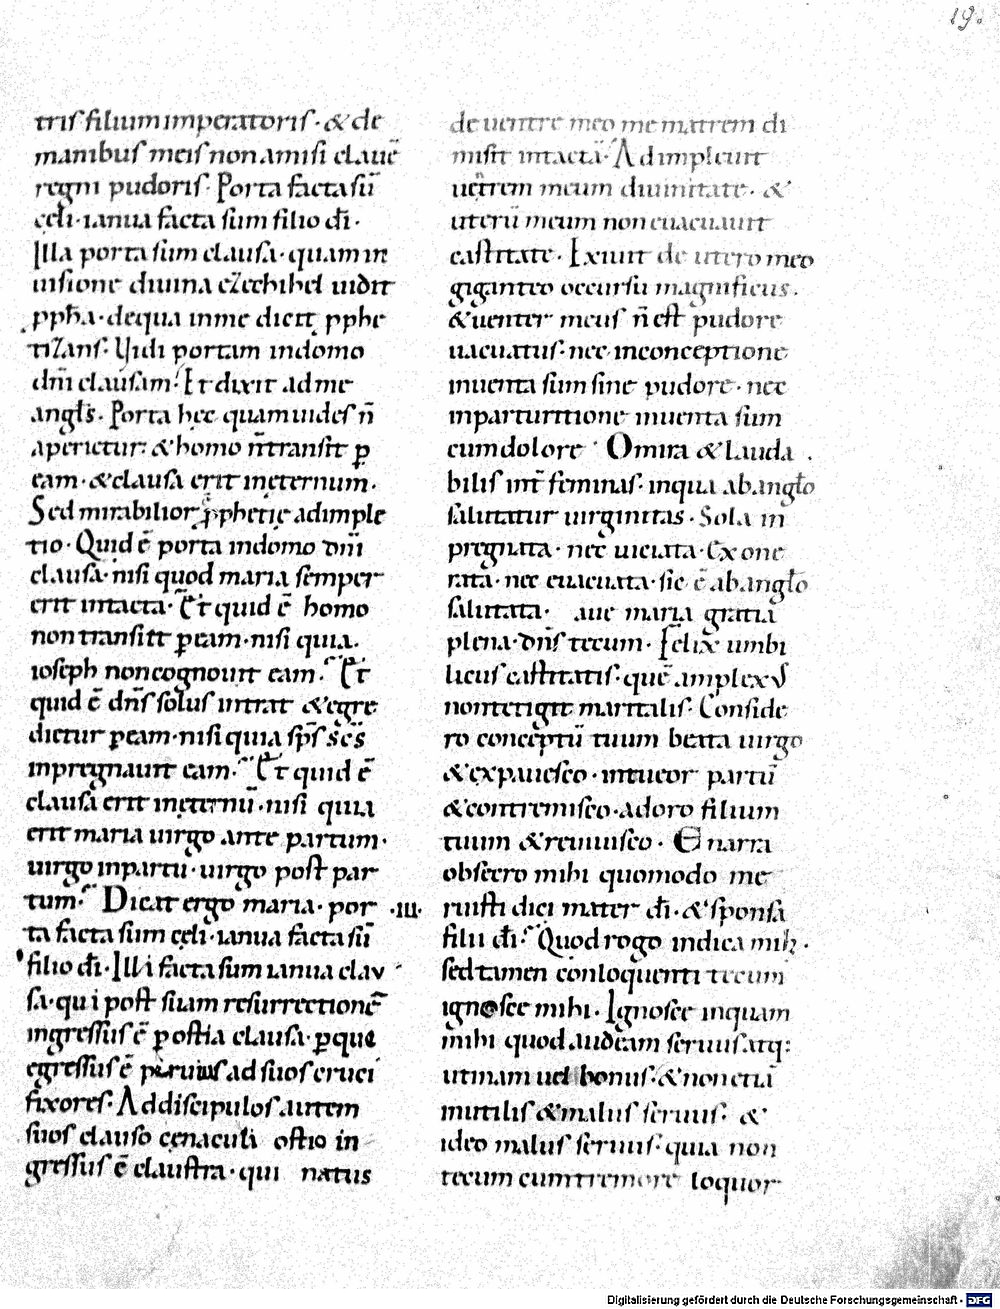 19.
tris filium imperatoris· & de
manibus meis non amisi clauē
regni pudoris· Porta facta sū
cęli· ianua facta sum filio dī·
Illa porta sum clausa· quam in
uisione diuina ezechihel uidit
ppħa· de qua in me dicit pphe
tizans· Vidi portam in domo
dn̄i clausam· Et dixit ad me
angl̄s· Porta hęc quam uides n̄
aperietur· & homo n̄ transit p̄
eam· & clausa erit in ęternum·
Sed mirabilior p̄phetię adimple
tio· Quid ē porta in domo dn̄i
clausa· nisi quod maria semper
erit intacta· Et quid ē homo
non transitt p̄ eam· nisi quia·
ioseph non cognouit eam· Et
quid ē dn̄s solus intrat & egre
dietur p̄ eam· nisi quia sp̄s sc̄s
inpregnauit eam· Et quid ē
clausa erit in ęternū· nisi quia
erit maria uirgo ante partum·
uirgo in partu· uirgo post par
tum· Dicat ergo maria· por ·III·
ta facta sum cęli· ianua facta sū
filio dī· Illi facta sum ianua clau
sa· qui post suam resurrectionē
ingressus ē p̄ ostia clausa· p̄ que
egressus ē peruius ad suos cruci
fixores· Ad discipulos autem
suos clauso cęnaculi ostio in
gressus ē claustra· qui natus
de uentre meo me matrem di
misit intactā· Adimpleuit
uētrem meum diuinitate· &
uterū meum non euacuauit
castitate· Exiuit de utero meo
giganteo occursu magnificus·
& uenter meus n̄ est pudore
uacuatus· nec in conceptione
inuenta sum sine pudore· nec
in parturitione inuenta sum
cum dolore· O mira & lauda
bilis int̄ feminas· in qua ab anglo
salutatur uirginitas· Sola in
pregnata· nec uiciata· Exone
rata· nec euacuata· sic ē ab anglo
salutata· aue maria gratia
plena· dn̄s tecum· Felix umbi
licus castitatis· quē amplexus
non tetigit maritalis· Conside
ro conceptū tuum beata uirgo
& expauesco· intueor partū
& contremisco· adoro filium
tuum & reuiuisco· Enarra
obsecro mihi quomodo me
ruisti dici mater dī· & sponsa
filii dī· Quod rogo indica mihi·
sed tamen conloquenti tecum
ignosce mihi· Ignosce inquam
mihi quod audeam seruus atq:
utinam uel bonus· & non etiā
inutilis & malus seruus· &
ideo malus seruus· quia non
tecum cum tremore loquor
Digitalisierung gefördert durch die Deutsche Forschungsgemeinschaft - DFG